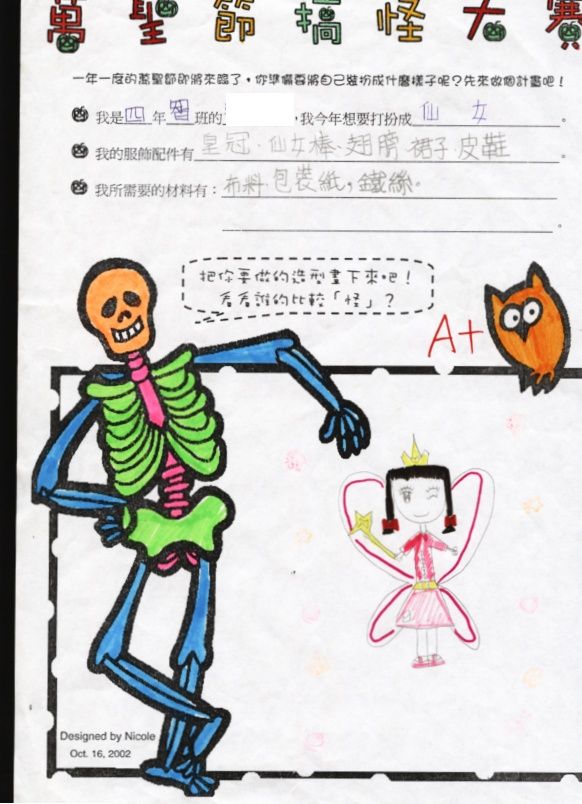 萬聖節搞怪大賽
一年一度的萬聖節即將來臨了，你準備要將自己裝扮成什麼樣子呢？先來做個計畫吧！
我是四年智班的，我今年想要打扮成仙女。
我的服飾配件有皇冠、仙女棒、翅膀、裙子、皮鞋
我所需要的材料有：布料、包裝紙，鐵絲。
。
把你要做的造型畫下來吧！
看看誰的比較「怪」？
A+
Designed by Nicole
Oct. 16, 2002